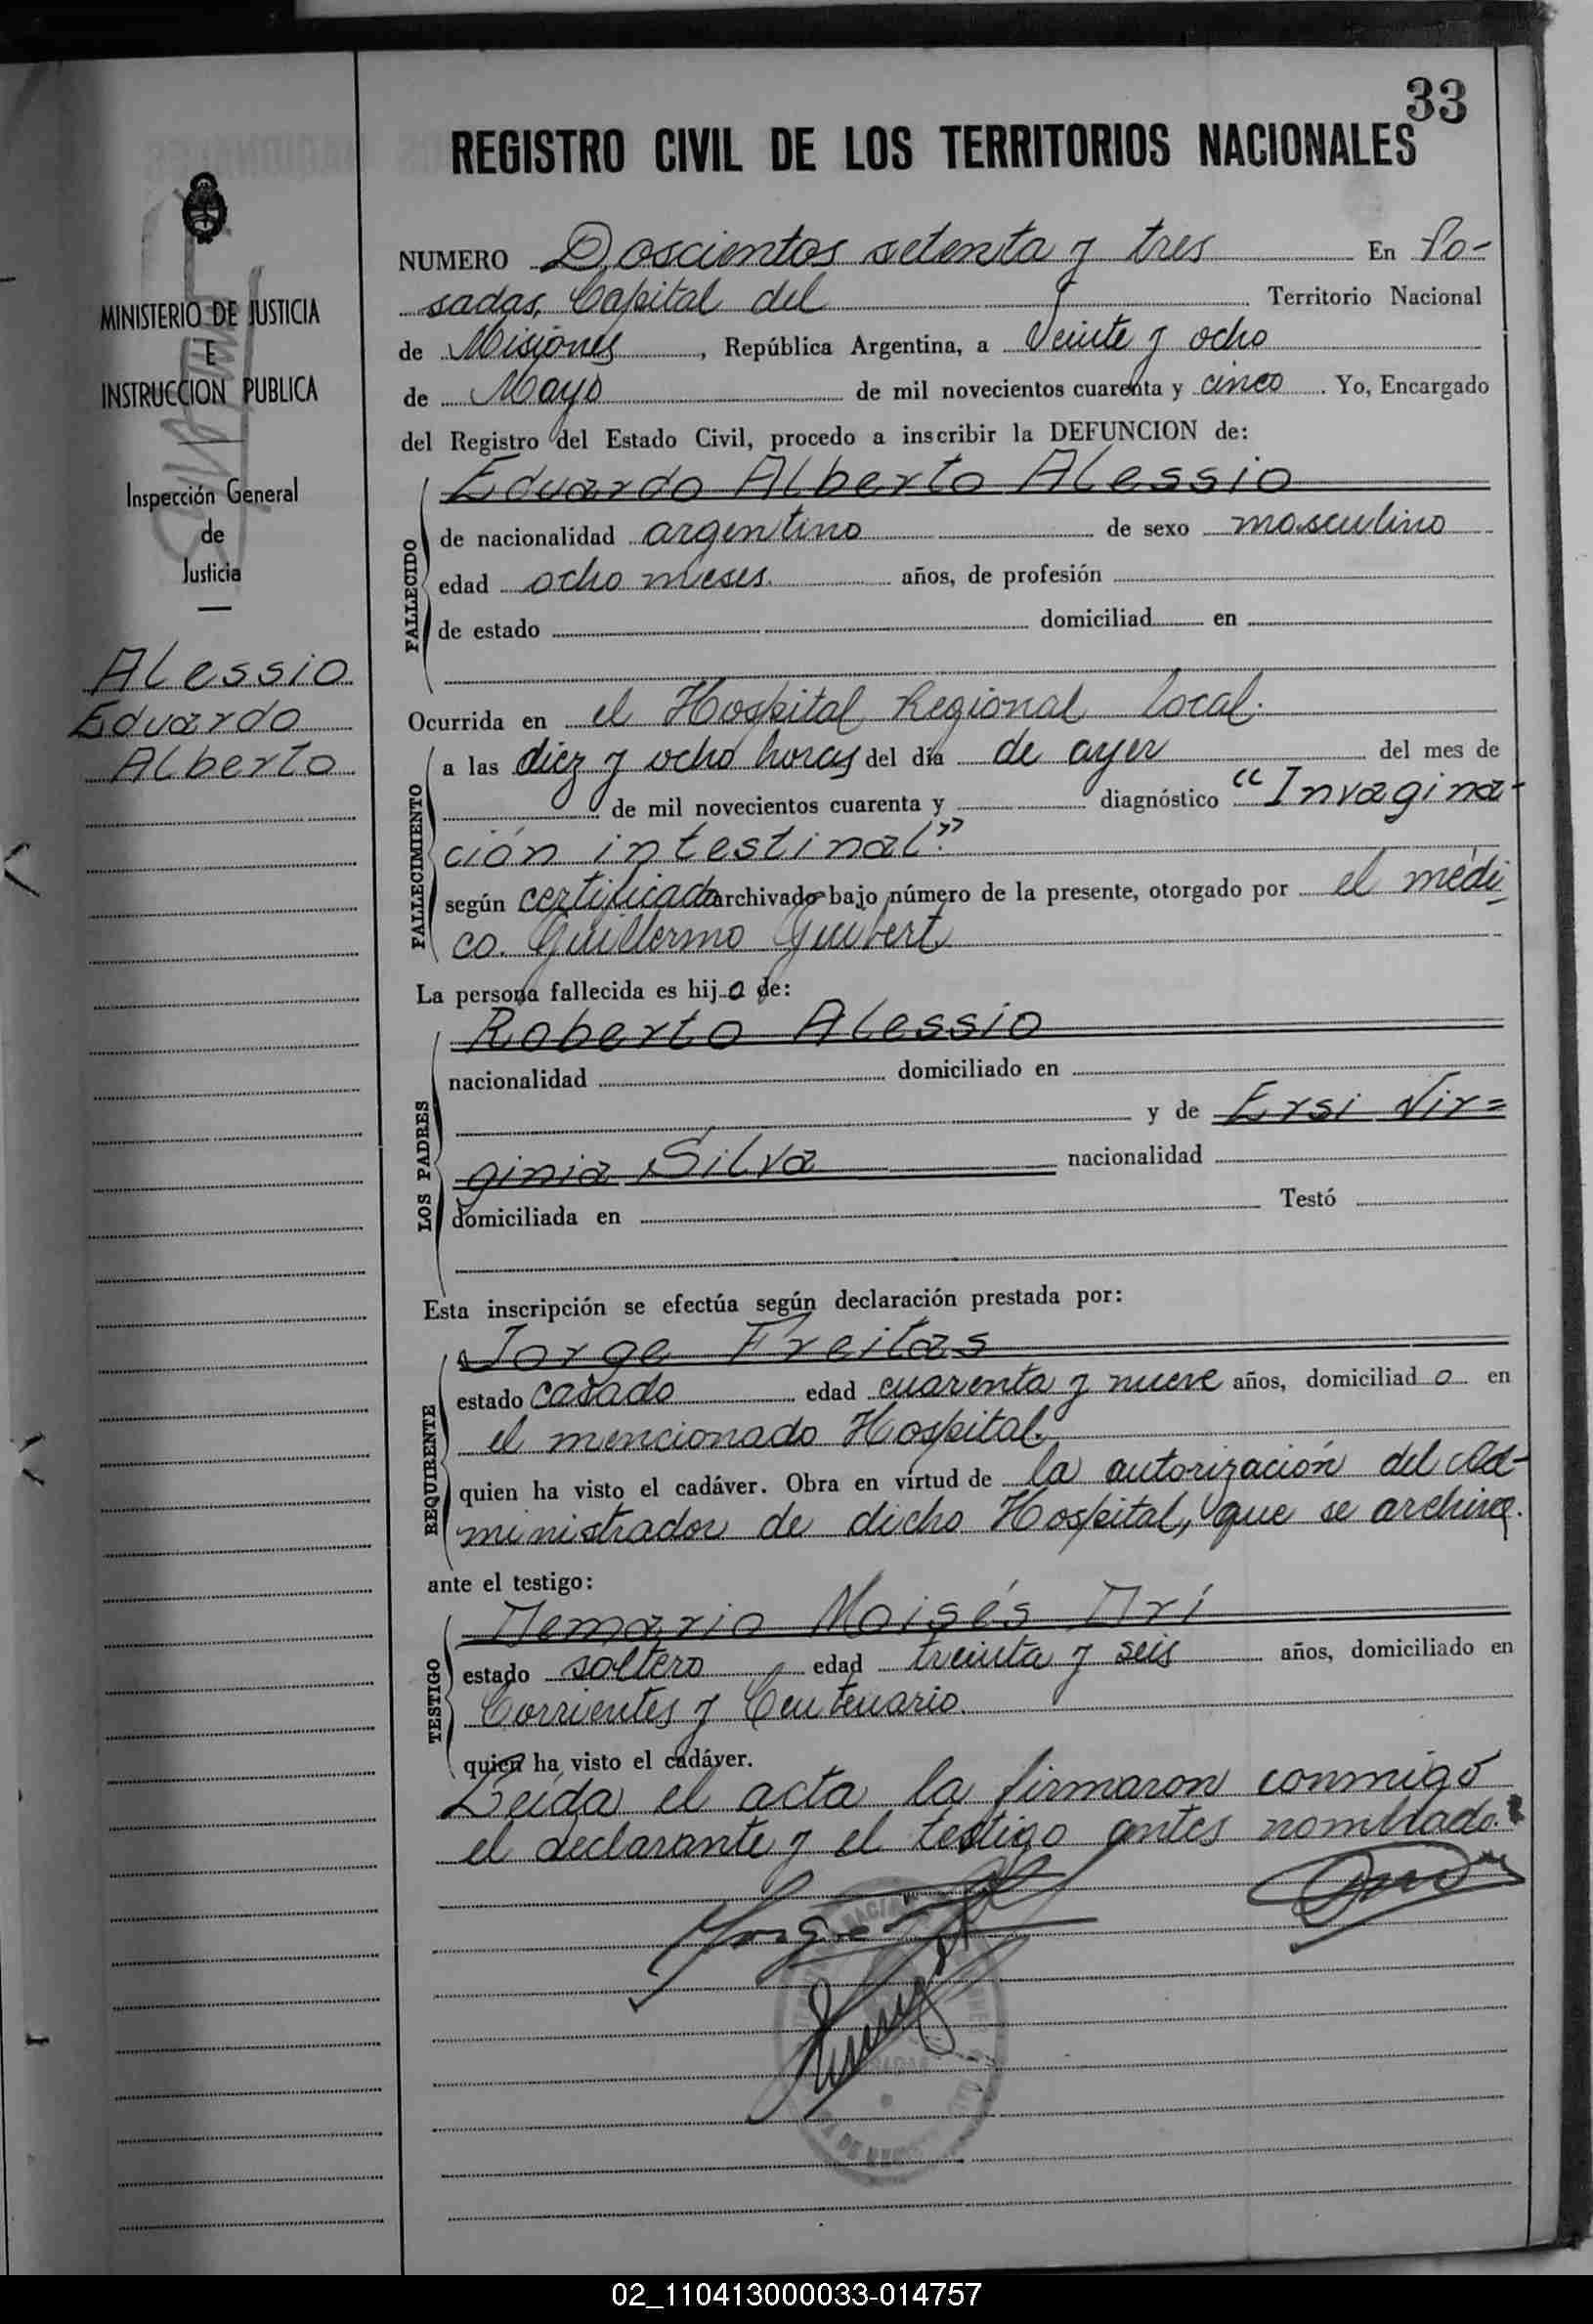 33
REGISTRO CIVIL DE LOS TERRITORIOS NACIONALES
MINISTERIO DE JUSTICIA
E
INSTRUCCION PUBLICA
Inspección General
de
Justicia
Alessio
Eduardo
Alberto
NUMERO Doscientos setenta y tres En Po-
sadas, Capital del Territorio Nacional
de Misiones, República Argentina, a Veinte y ocho
de Mayo de mil novecientos cuarenta y cinco. Yo, Encargado
del Registro del Estado Civil, procedo a inscribir la DEFUNCION de:
FALLECIDO
Eduardo Alberto Alessio
de nacionalidad argentino de sexo masculino
edad ocho meses. años, de profesión
de estado domiciliad en
Ocurrida en el Hospital Regional local.
FALLECIMIENTO
a las diez y ocho horas del día de ayer del mes de
de mil novecientos cuarenta y diagnóstico "Invagina-
ción intestinal".
según certificado archivado bajo número de la presente, otorgado por el médi-
co. Guillermo Guibert
La persona fallecida es hijo de:
LOS PADRES
Roberto Alessio
nacionalidad domiciliado en
y de Ersi Vir=
ginia Silva nacionalidad
domiciliada en Testó
Esta inscripción se efectúa según declaración prestada por:
REQUIRENTE
Jorge Freitas
estado casado edad cuarenta y nueve años, domiciliado en
el mencionado Hospital.
quien ha visto el cadáver. Obra en virtud de la autorización del Ad-
ministrador de dicho Hospital, que se archiva.
ante el testigo:
TESTIGO
Demario Moisés Drí
estado soltero edad treinta y seis años, domiciliado en
Corrientes y Centenario.
quien ha visto el cadáver.
Leída el acta la firmaron conmigo
el declarante y el testigo antes nombrado.
02_110413000033-014757